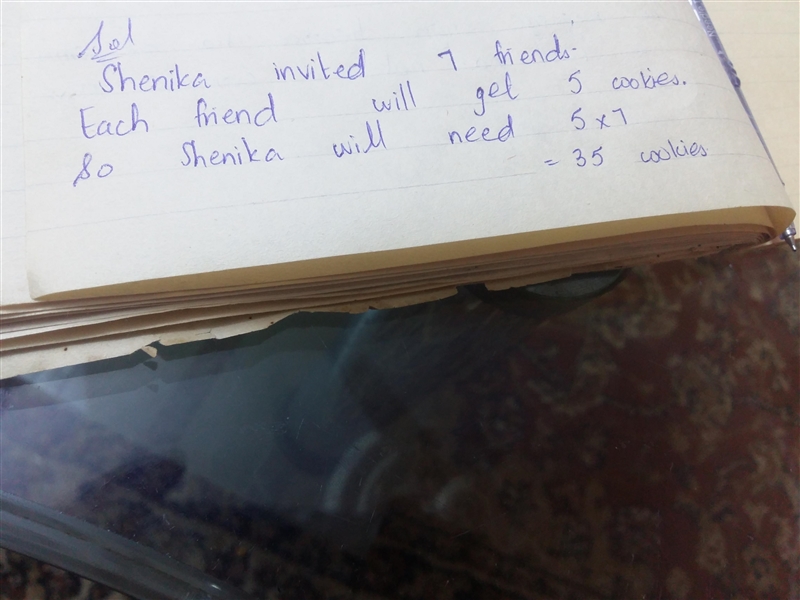 Sol
Shenika invited 7 friends.
Each friend will get 5 cookies.
So Shenika will need 5x7
= 35 cookies